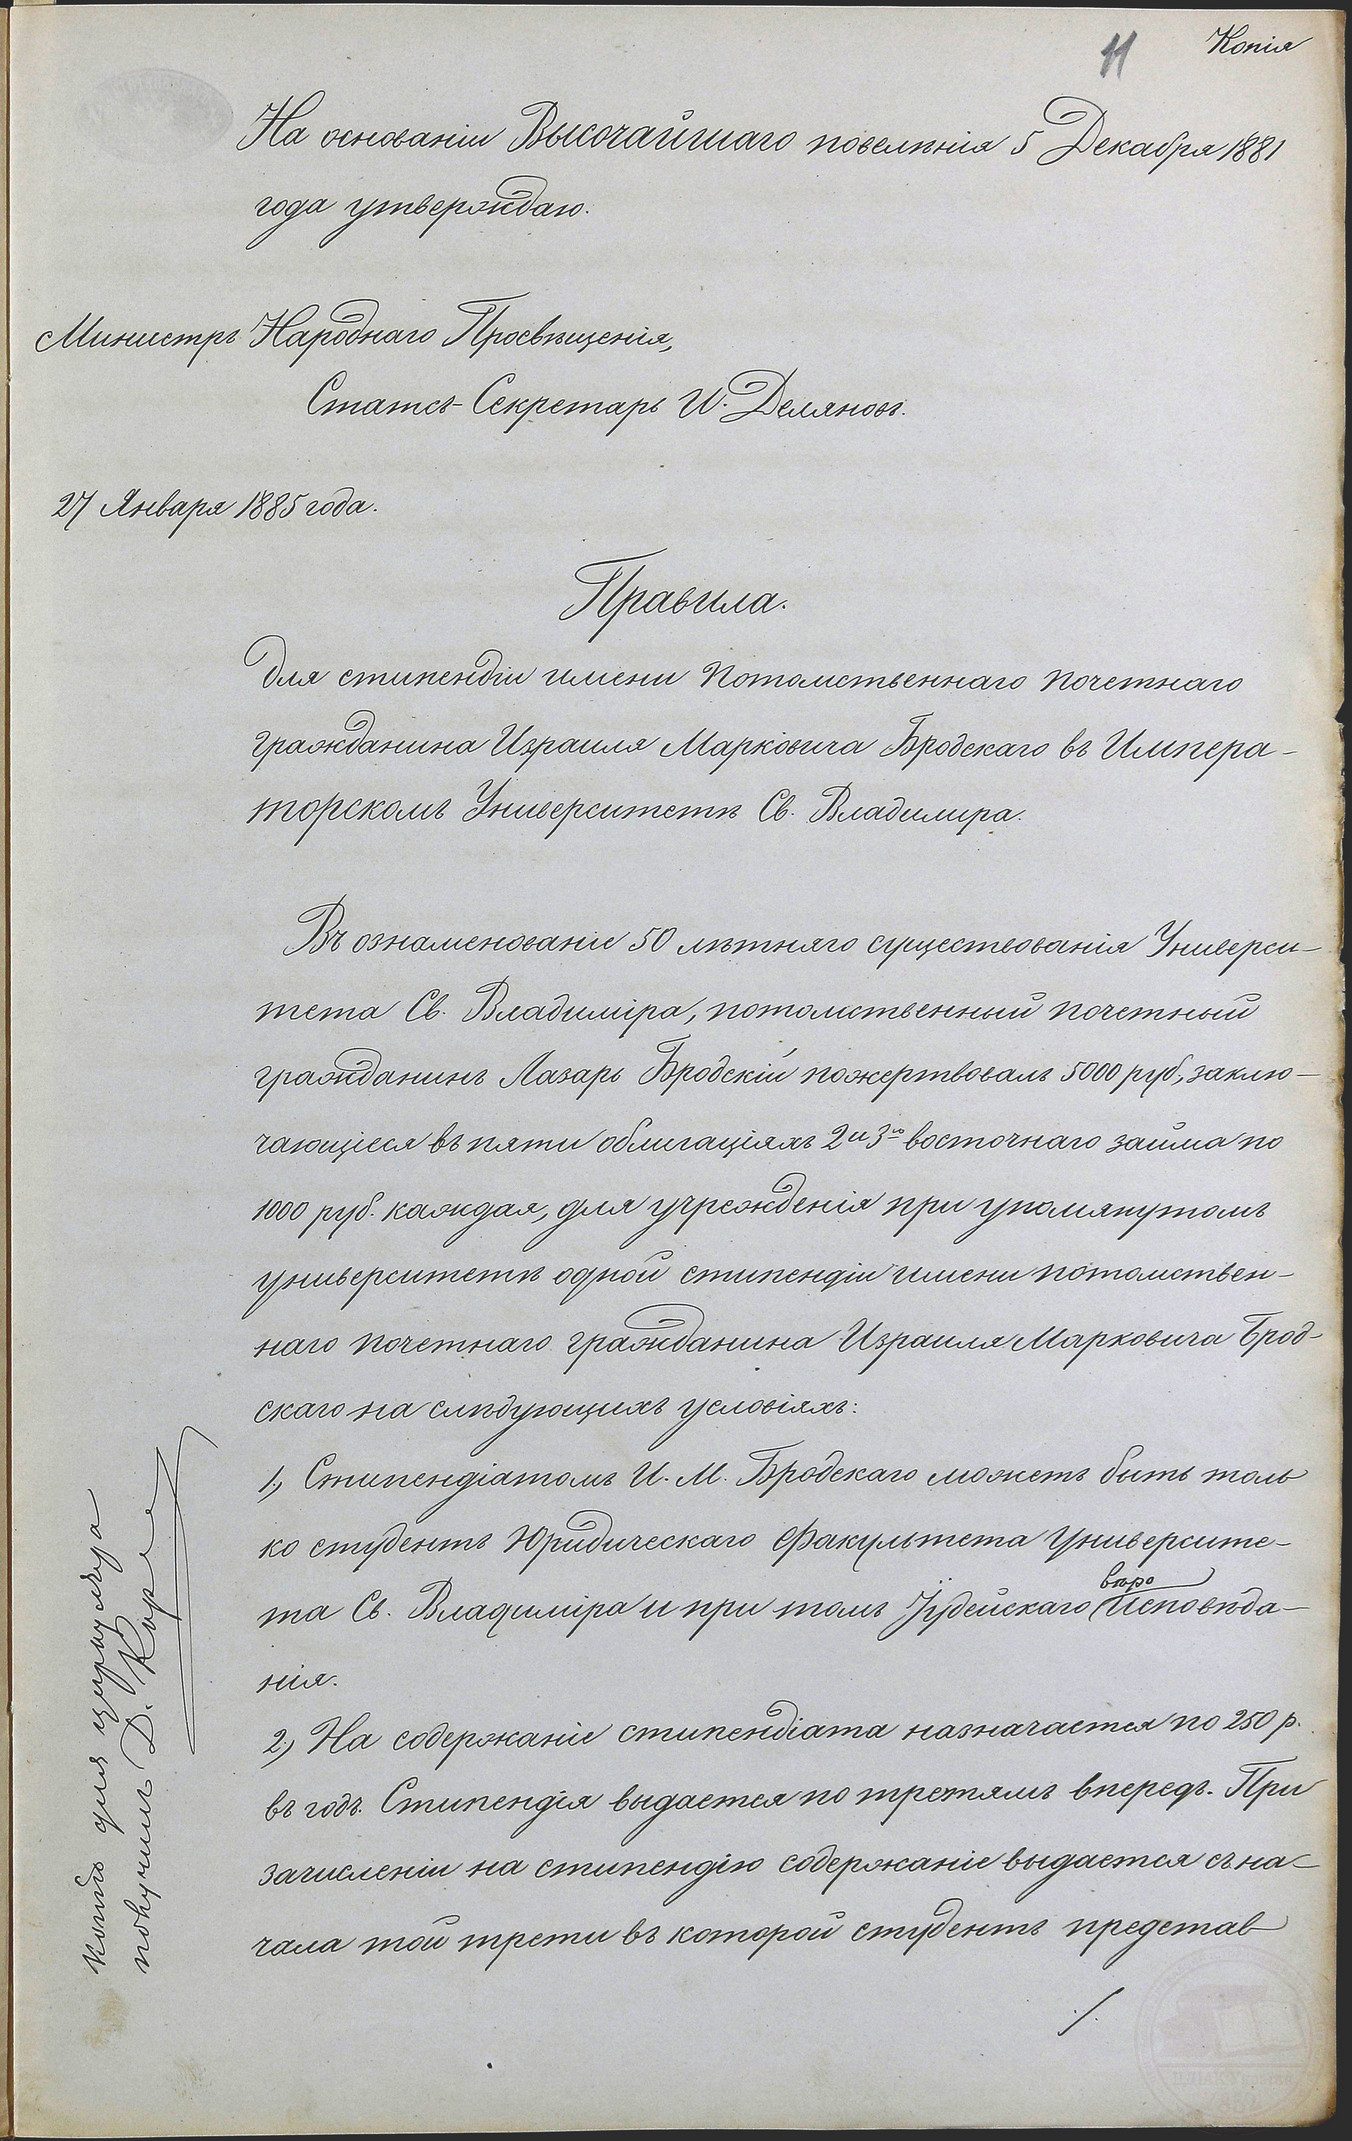 11
Копія
На основаніи Высочайшаго повелѣнія 5 Декабря 1881
года утверждаю.
Министръ Народнаго Просвѣщенія,
Статсъ-Секретарь И. Деляновъ.
27 Января 1885 года.
Правила.
для стипендіи имени Потомственнаго почетнаго
гражданина Израиля Марковича Бродскаго въ Импера-
торскомъ Университетѣ Св. Владимира.
Въ ознаменованіе 50 лѣтняго существованія Универси-
тета Св. Владиміра, потомственный почетный
гражданинъ Лазарь Бродскій пожертвовалъ 5000 руб., заклю-
чающіеся въ пяти облигаціяхъ 2 и 3го восточнаго займа по
1000 руб. каждая, для учрежденія при упомянутомъ
университетѣ одной стипендіи имени потомствен-
наго почетнаго гражданина Израиля Марковича Брод-
скаго на слѣдующихъ условіяхъ:
1, Стипендіатомъ И. М. Бродскаго можетъ быть толь
ко студентъ Юридическаго Факультета Университе-
вѣро
та Св. Владиміра и при томъ Іудейскаго исповѣда-
нія.
2, На содержаніе стипендіата назначается по 250 р.
въ годъ. Стипендія выдается по третямъ впередъ. При
зачисленіи на стипендію содержаніе выдается съ на-
чала той трети въ которой студентъ представ
./.
Копію для циркуляра
получилъ Д.